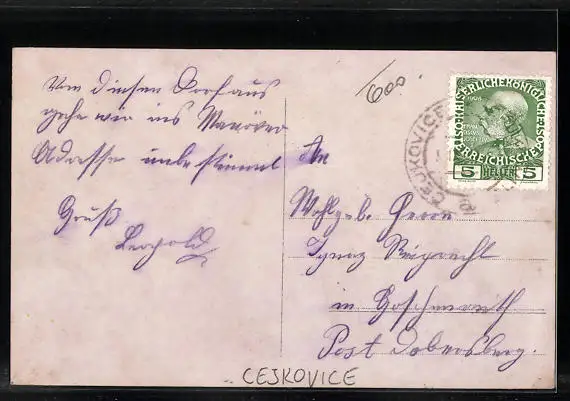 Von diesen Dorf aus
gehe wir ins Manöver
Adresse unbestimmt
Gruß
Leopold
600.
KAISERLICHE KÖNIGLICHE
ÖSTERREICHISCHE POST
1908
5 HELLER 5
CEJKOVICE
An
Wohlgeb. Herrn
Ignaz
in
Post Dobersberg.
CEJKOVICE